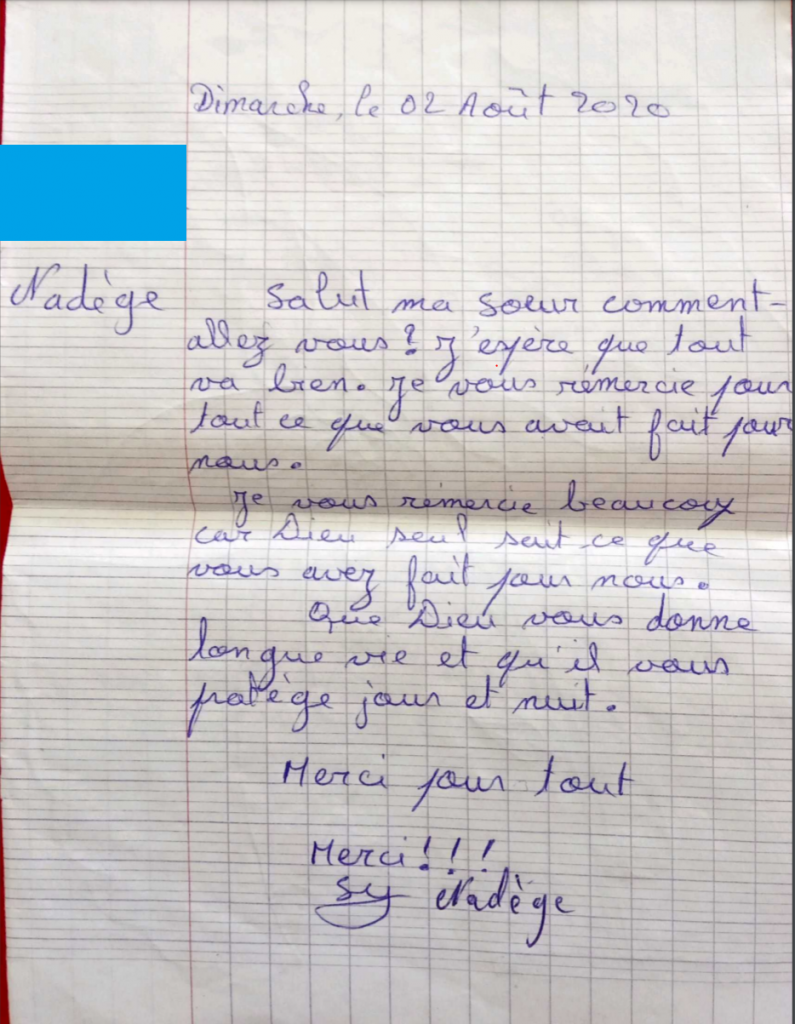 Dimanche, le 02 Août 2020
Nadège
Salut ma soeur comment-
allez vous? J'espère que tout
va bien. Je vous rémercie pour
tout ce que vous avait fait pour
nous.
Je vous rémercie beaucoup
car Dieu seul sait ce que
vous avez fait pour nous.
Que Dieu vous donne
longue vie et qu'il vous
protège jour et nuit.
Merci pour tout
Merci!!!
Sy Nadège